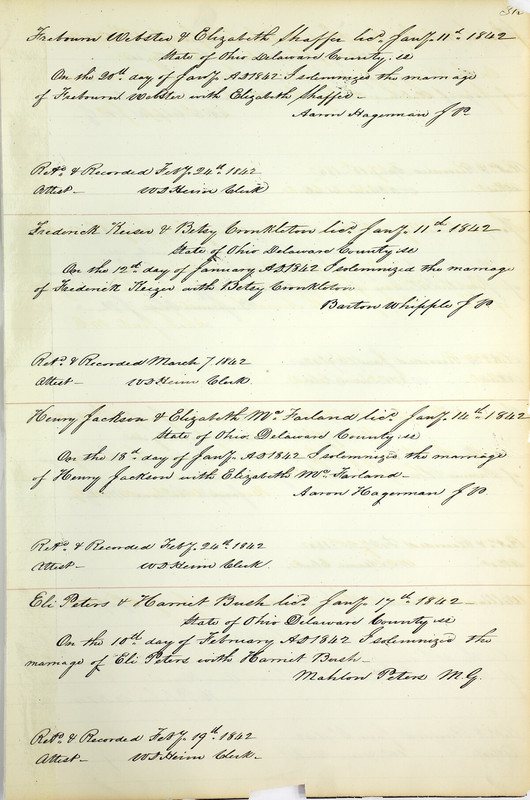 Freebourn Webster & Elizabeth Shaffer licd. Jany. 11th. 1842
State of Ohio Delaware County. ss
On the 20th. day of Jany. AD 1842 I solemnized the marriage
of Freebourn Webster with Elizabeth Shaffer -
Aaron Hagerman J P.
Retd. & Recorded Feby. 24th. 1842
Attest - W D Heim Clerk
Frederick Keiser & Betsy Cronkleton licd. Jany. 11th. 1842
State of Ohio Delaware County ss
On the 12th. day of January AD 1842 I solemnized the marriage
of Frederick Keizer with Betsy Cronkleton
Barton Whipple J P.
Retd. & Recorded March 7 1842
Attest - W D Heim Clerk.
Henry Jackson & Elizabeth Mc. Farland licd. Jany. 14th. 1842
State of Ohio. Delaware County. ss
On the 18th. day of Jany. AD 1842 I solemnized the marriage
of Henry Jackson with Elizabeth Mc. Farland -
Aaron Hagerman J P.
Retd. & Recorded Feby. 24th. 1842
Attest - W D Heim Clerk.
Eli Peters & Harriet Bush licd. Jany. 17th. 1842 -
State of Ohio Delaware County ss
On the 10th. day of February AD 1842 I solemnized the
marriage of Eli Peters with Harriet Bush -
Mahlon Peters M.G.
Retd. & Recorded Feby. 19th. 1842
Attest - W D Heim Clerk -